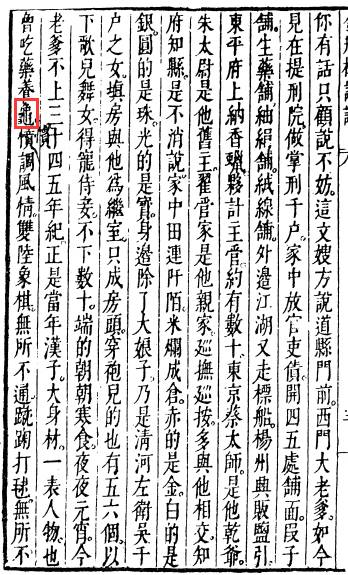 你有話只顧說不妨這文嫂方說道縣門前西門大老爹如今
見在提刑院做掌刑千户家中放官吏債開四五處舖面段子
舖生藥舖紬絹舖絨線舖外邊江湖又走標船楊州興販鹽引
東平府上納香蠟夥計主管約有數十東京蔡太師是他乾爺
朱太尉是他舊主翟管家是他親家巡撫巡按多與他相交知
府知縣是不消說家中田連阡陌米爛成倉赤的是金白的是
銀圓的是珠光的是寶身邊除了大娘子乃是清河左衛吳千
户之女填房與他為繼室只成房頭穿袍兒的也有五六個以
下歌兒舞女得寵侍妾不下數十端的朝朝寒食夜夜元宵今
老爹不上三十四五年紀正是當年漢子大身材一表人物也
曾吃藥養龜慣調風情雙陸象棋無所不通蹴踘打毬無所不
慣